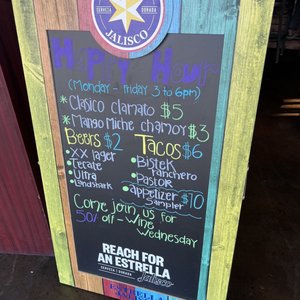 CERVEZA DORADA
JALISCO
Happy Hour
(Monday - friday 3 to 6pm)
* Clasico clamato $5
* Mango Miche chamoy $3
Beers $2 Tacos $6
• XX lager • Bistek
• Tecate ranchero
• Ultra • Pastor
• Landshark • appetizer $10
Sampler
Come join us for
50% off - Wine
Wednesday
REACH FOR
AN ESTRELLA
CERVEZA DORADA Jalisco